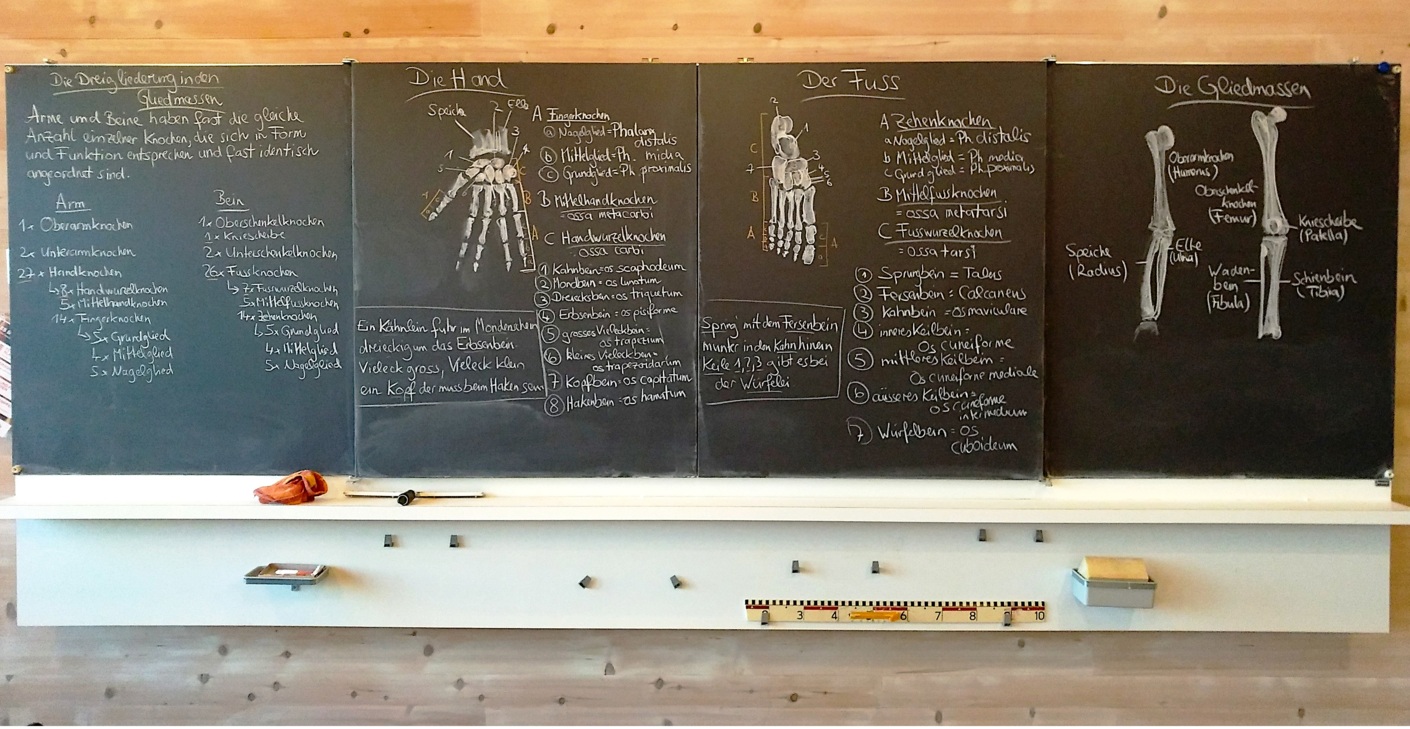 Die Dreigliederung in den
Gliedmassen
Arme und Beine haben fast die gleiche
Anzahl einzelner Knochen, die sich in Form
und Funktion entsprechen und fast identisch
angeordnet sind.
Arm
1x Oberarmknochen
2x Unterarmknochen
27x Handknochen
↳ 8x Handwurzelknochen
5x Mittelhandknochen
14x Fingerknochen
↳ 5x Grundglied
4x Mittelglied
5x Nagelglied
Bein
1x Oberschenkelknochen
1x Kniescheibe
2x Unterschenkelknochen
26x Fussknochen
↳ 7x Fusswurzelknochen
5x Mittelfussknochen
14x Zehenknochen
↳ 5x Grundglied
4x Mittelglied
5x Nagelglied
Die Hand
Speiche
Elle
A Fingerknochen
a Nagelglied = Phalanx
distalis
b Mittelglied = Ph. midia
c Grundglied = Ph. proximalis
B Mittelhandknochen
= ossa metacarbi
C Handwurzelknochen
= ossa carbi
1 Kahnbein = os scaphodeum
2 Mondbein = os lunatum
3 Dreiecksbein = os triquetum
4 Erbsenbein = os pisiforme
5 grosses Vieleckbein =
os trapezium
6 kleines Vieleckbein =
os trapezoidarium
7 Kopfbein = os capitatum
8 Hakenbein = os hamatum
Ein Kähnlein fuhr im Mondenschein
dreieckig um das Erbsenbein.
Vieleck gross, Vieleck klein
ein Kopf der muss beim Haken sein
Der Fuss
A Zehenknochen
a Nagelglied = Ph. distalis
b Mittelglied = Ph. media
c Grundglied = Ph. proximalis
B Mittelfussknochen
= ossa metatarsi
C Fusswurzelknochen
= ossa tarsi
1 Sprungbein = Talus
2 Fersenbein = Calcaneus
3 Kahnbein = os naviculare
4 inneres Keilbein =
Os cuneiforme
5 mittleres Keilbein =
Os cuneiforme mediale
6 äusseres Keilbein =
os cuneiforme
intermedium
7 Würfelbein = os
cuboideum
Spring mit dem Fersenbein
munter in den Kahn hinein
Keile 1,2,3 gibt es bei
der Würfelei
Die Gliedmassen
Oberarmknochen
(Humerus)
Oberschenkel-
knochen
(Femur)
Kniescheibe
(Patella)
Speiche
(Radius)
Elle
(Ulna)
Waden-
bein
(Fibula)
Schienbein
(Tibia)
3 4 6 7 8 10